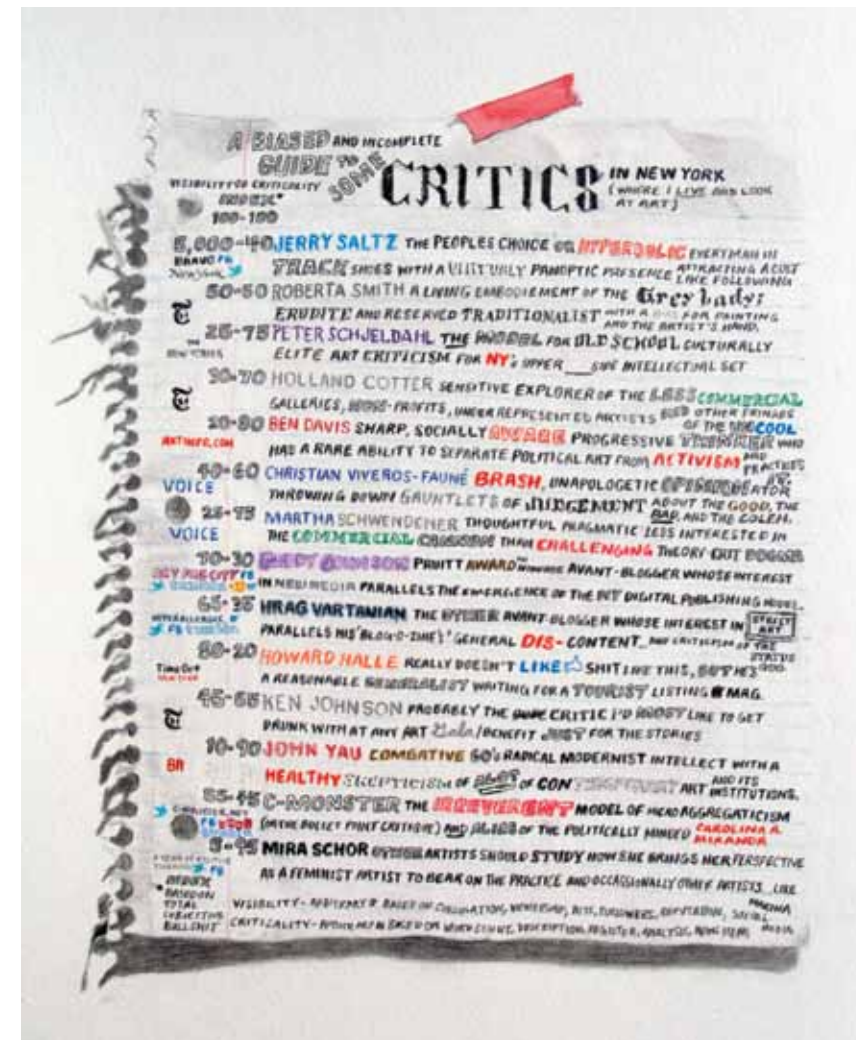 A BIASED AND INCOMPLETE
GUIDE TO SOME CRITICS IN NEW YORK
(WHERE I LIVE AND LOOK AT ART)
VISIBILITY OR CRITICALITY
100-100
5,000-40 JERRY SALTZ THE PEOPLES CHOICE OR HYPERBOLIC EVERYMAN IN
BRAVO FB
New York
TRACK SHOES WITH A VIRTUALLY PANOPTIC PRESENCE ATTRACTING A CULT LIKE FOLLOWING
50-50 ROBERTA SMITH A LIVING EMBODIEMENT OF THE Grey Lady:
ERUDITE AND RESERVED TRADITIONALIST WITH A FOR PAINTING AND THE ARTIST'S HAND.
25-75 PETER SCHJELDAHL THE MODEL FOR OLD SCHOOL CULTURALLY
ELITE ART CRITICISM FOR NY's UPPER ___ SIDE INTELLECTUAL SET
30-70 HOLLAND COTTER SENSITIVE EXPLORER OF THE LESS COMMERCIAL
GALLERIES, NONE-PROFITS, UNDER REPRESENTED ARTISTS AND OTHER FRINGES OF THE COOL
20-80 BEN DAVIS SHARP, SOCIALLY PROGRESSIVE THINKER WHO
ARTINFO.COM
HAS A RARE ABILITY TO SEPARATE POLITICAL ART FROM ACTIVISM AND PRACTICES
40-60 CHRISTIAN VIVEROS-FAUNÉ BRASH, UNAPOLOGETIC
VOICE
THROWING DOWN GAUNTLETS OF JUDGEMENT ABOUT THE GOOD, THE BAD, AND THE GOLEM.
25-75 MARTHA SCHWENDENER THOUGHTFUL PRAGMATIC LESS INTERESTED IN
VOICE
THE COMMERCIAL THAN CHALLENGING THEORY OUT
70-30 PADDY JOHNSON PRUITT AWARD AVANT-BLOGGER WHOSE INTEREST
ART FAG CITY FB
IN NEW MEDIA PARALLELS THE EMERGENCE OF THE DIGITAL PUBLISHING MODEL.
65-35 HRAG VARTANIAN THE OTHER AVANT-BLOGGER WHOSE INTEREST IN STREET ART
HYPERALLERGIC
PARALLELS HIS 'BLOG-O-ZINE'S' GENERAL DIS-CONTENT AND CRITICISM OF THE STATUS QUO.
80-20 HOWARD HALLE REALLY DOESN'T LIKE SHIT LIKE THIS, BUT HE'S
Time Out
A REASONABLE GENERALIST WRITING FOR A TOURIST LISTING MAG
45-55 KEN JOHNSON PROBABLY THE CRITIC I'D MOST LIKE TO GET
DRUNK WITH AT ANY ART Gala/BENEFIT JUST FOR THE STORIES
10-90 JOHN YAU COMBATIVE 60's RADICAL MODERNIST INTELLECT WITH A
BR
HEALTHY SKEPTICISM OF OF CONTEMPORARY ART AND ITS INSTITUTIONS.
55-45 C-MONSTER THE IRREVERENT MODEL OF AGGREGATICISM
C-MONSTER.NET
(OR THE BULLET POINT CRITIQUE) AND OF THE POLITICALLY MINDED CAROLINA A. MIRANDA
5-95 MIRA SCHOR OTHER ARTISTS SHOULD STUDY HOW SHE BRINGS HER PERSPECTIVE
AS A FEMINIST ARTIST TO BEAR ON THE PRACTICE AND OCCASSIONALLY OTHER ARTISTS LIKE MARINA
BASED ON TOTAL SUBJECTIVE BULLSHIT
VISIBILITY- BASED ON CIRCULATION, VIEWERSHIP, FOLLOWERS, SOCIAL MEDIA
CRITICALITY- BASED ON WORD COUNT, DESCRIPTION, REGISTER, ANALYSIS,